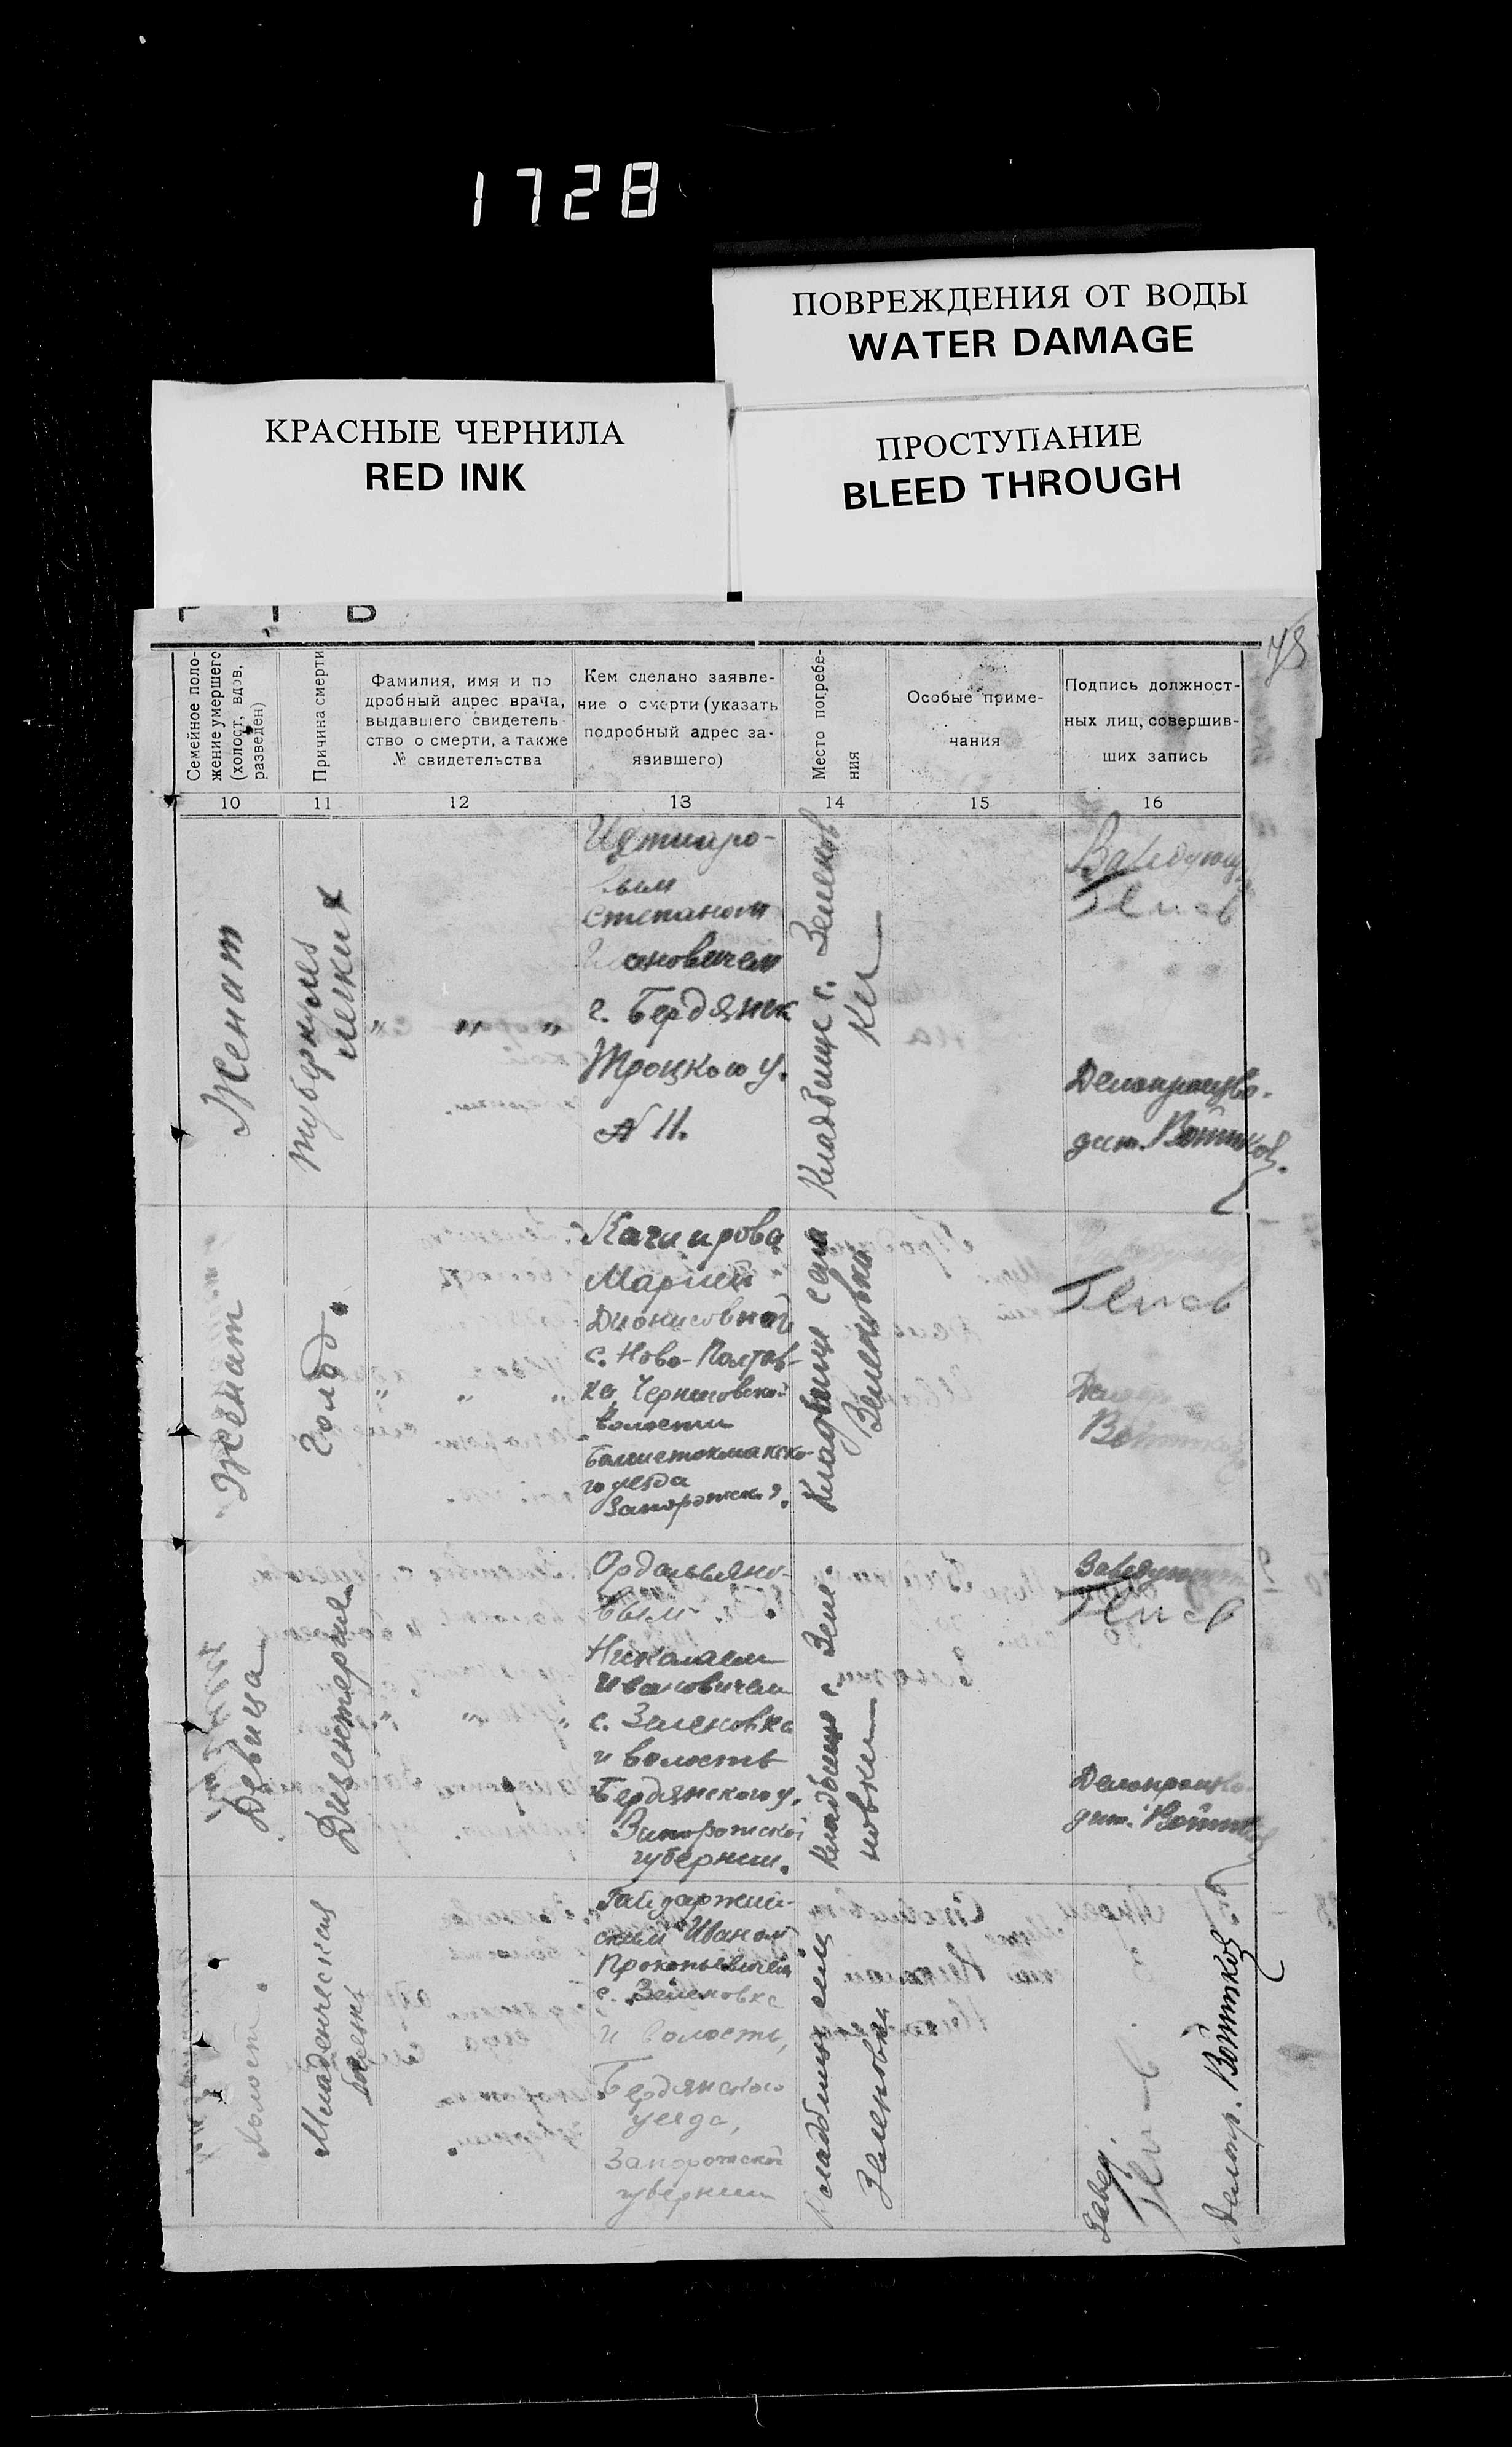 1728
ПОВРЕЖДЕНИЯ ОТ ВОДЫ
WATER DAMAGE
КРАСНЫЕ ЧЕРНИЛА
RED INK
ПРОСТУПАНИЕ
BLEED THROUGH
Семейное поло-
жение умершего
(холост, вдов,
разведен)
Причина смерти
Фамилия, имя и по
дробный адрес врача,
выдавшего свидетель
ство о смерти, а также
№ свидетельства
Кем сделано заявле-
ние о смерти (указать
подробный адрес за-
явившего)
Место погребе-
ния
Особые приме-
чания
Подпись должност-
ных лиц, совершив-
ших запись
10
11
12
13
14
15
16
Женат
туберкулез
легких
" " "
вым
Степаном
г. Бердянск
Троцкого у.
N 11.
Кладбище с. Зеленов
ки
Делопроизво-
дит. Войтков
Женат
Голод.
" " "
Марией
Дионисовной
с. Ново-Полтав-
ка Черниговской
волости
го уезда
Кладбище села
Зеленовка
Девица
Дизентерия
" " "
вым
Николаем
Ивановичем
с. Зеленовка
и волость
Бердянского у.
Запорожской
губернии.
Кладбище с. Зеле-
новки
Заведующий
Делопроизво-
дит. Войтков
Холост.
Младенческая
болезнь
ским Иваном
Прокопьевичем
с. Зеленовка
и волость,
Бердянского
уезда,
Запорожской
губернии
Кладбище села
Зеленовки
Завед.
Делопр. Войтков